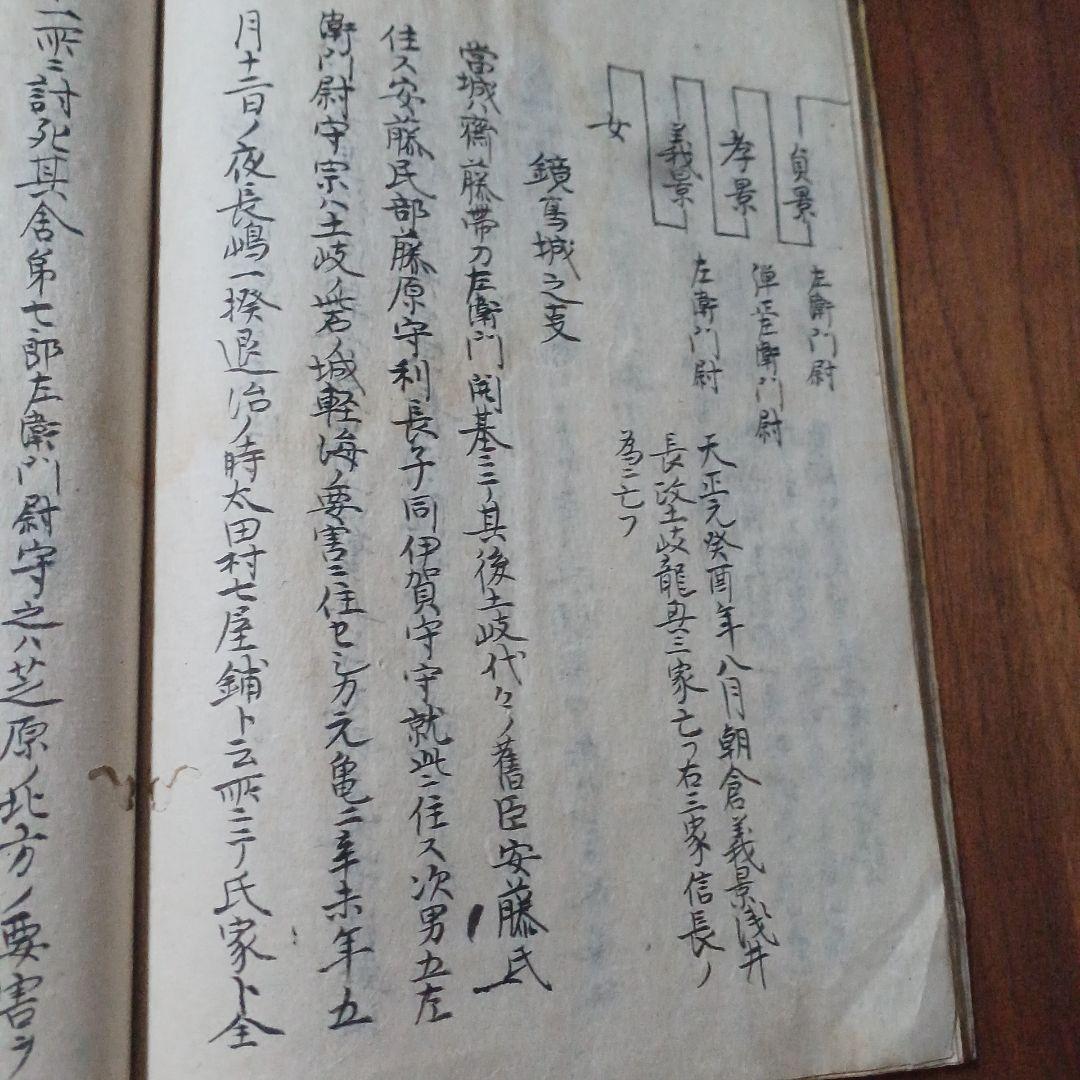 貞景 左衛門尉
孝景 弾正左衛門尉
義景 左衛門尉
女
天正元癸酉年八月朝倉義景浅井
長政土岐龍興三家亡フ右三家信長ノ
為ニ亡フ
鏡島城之事
當城ハ齋藤帯刀左衛門開基ニシテ其後土岐代々ノ舊臣安藤氏
住ス安藤民部藤原守利長子同伊賀守守就此ニ住ス次男五左
衛門尉守宗ハ土岐ノ砦ノ城軽海ノ要害ニ住セシカ元亀二辛未年五
月十二日ノ夜長嶋一揆退治ノ時太田村七屋鋪ト云所ニテ氏家ト全
所ニ討死其舎弟七郎左衛門尉守之ハ芝原ノ北方ノ要害ヲ